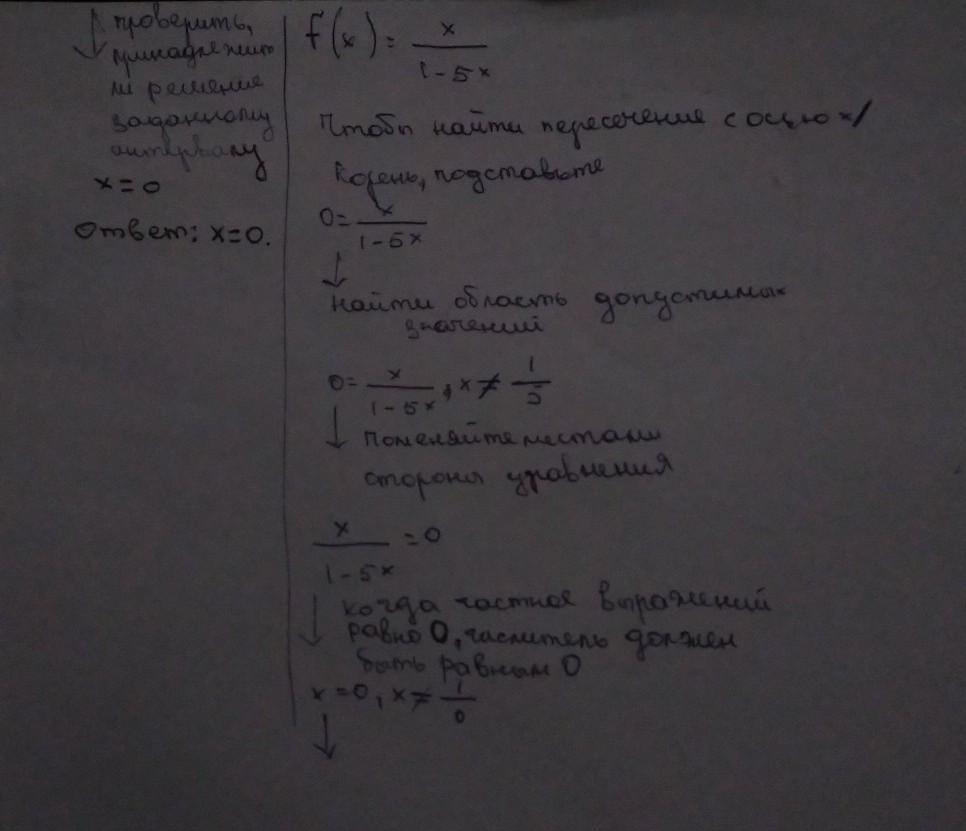 f(x) = x / 1-5x
Чтобы найти пересечение с осью x/
Корень, подставьте
0 = x / 1-5x
↓
найти область допустимых
значений
0 = x / 1-5x, x ≠ 1/5
↓ Поменяйте местами
стороны уравнения
x / 1-5x = 0
↓ когда частное выражений
равно 0, числитель должен
быть равным 0
x = 0, x ≠ 1/0
↓
↓ проверить,
принадлежит
ли решение
заданному
интервалу
x = 0
Ответ: x = 0.